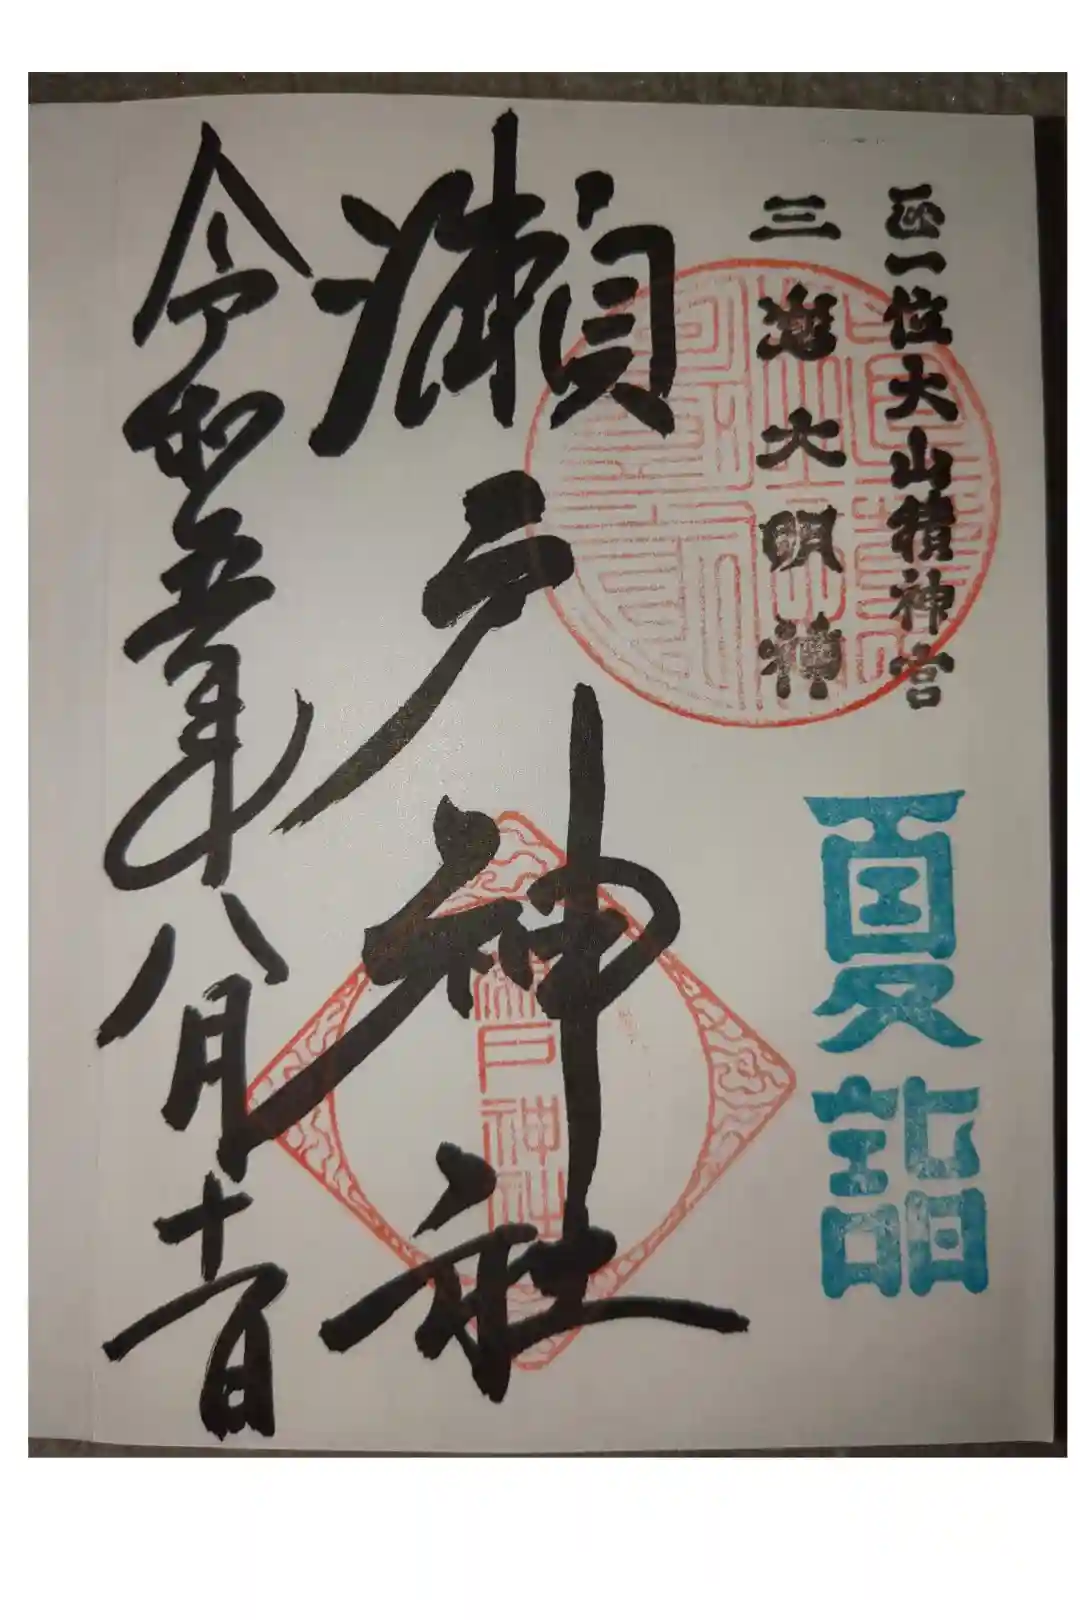 正一位大山積神宮
三嶋大明神
夏詣
瀬戸神社
瀬戸神社
令和五年八月十一日